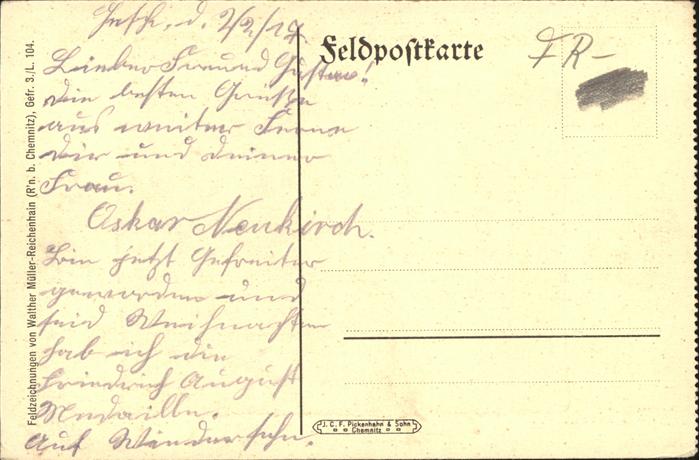 d. 2/2/17
Lieber Freund Gustav!
Die besten Grüße
aus weiter Ferne
Dir und deiner
Frau.
Oskar Neukirch.
Bin jetzt Gefreiter
geworden und
seid Weihnachten
hab ich die
Friedrich August
Medaille.
Auf Wiedersehn.
Feldpostkarte
FR-
Feldzeichnungen von Walther Müller-Reichenhain (R'n. b. Chemnitz), Gefr. 3./L. 104.
J. C. F. Pickenhahn & Sohn
Chemnitz